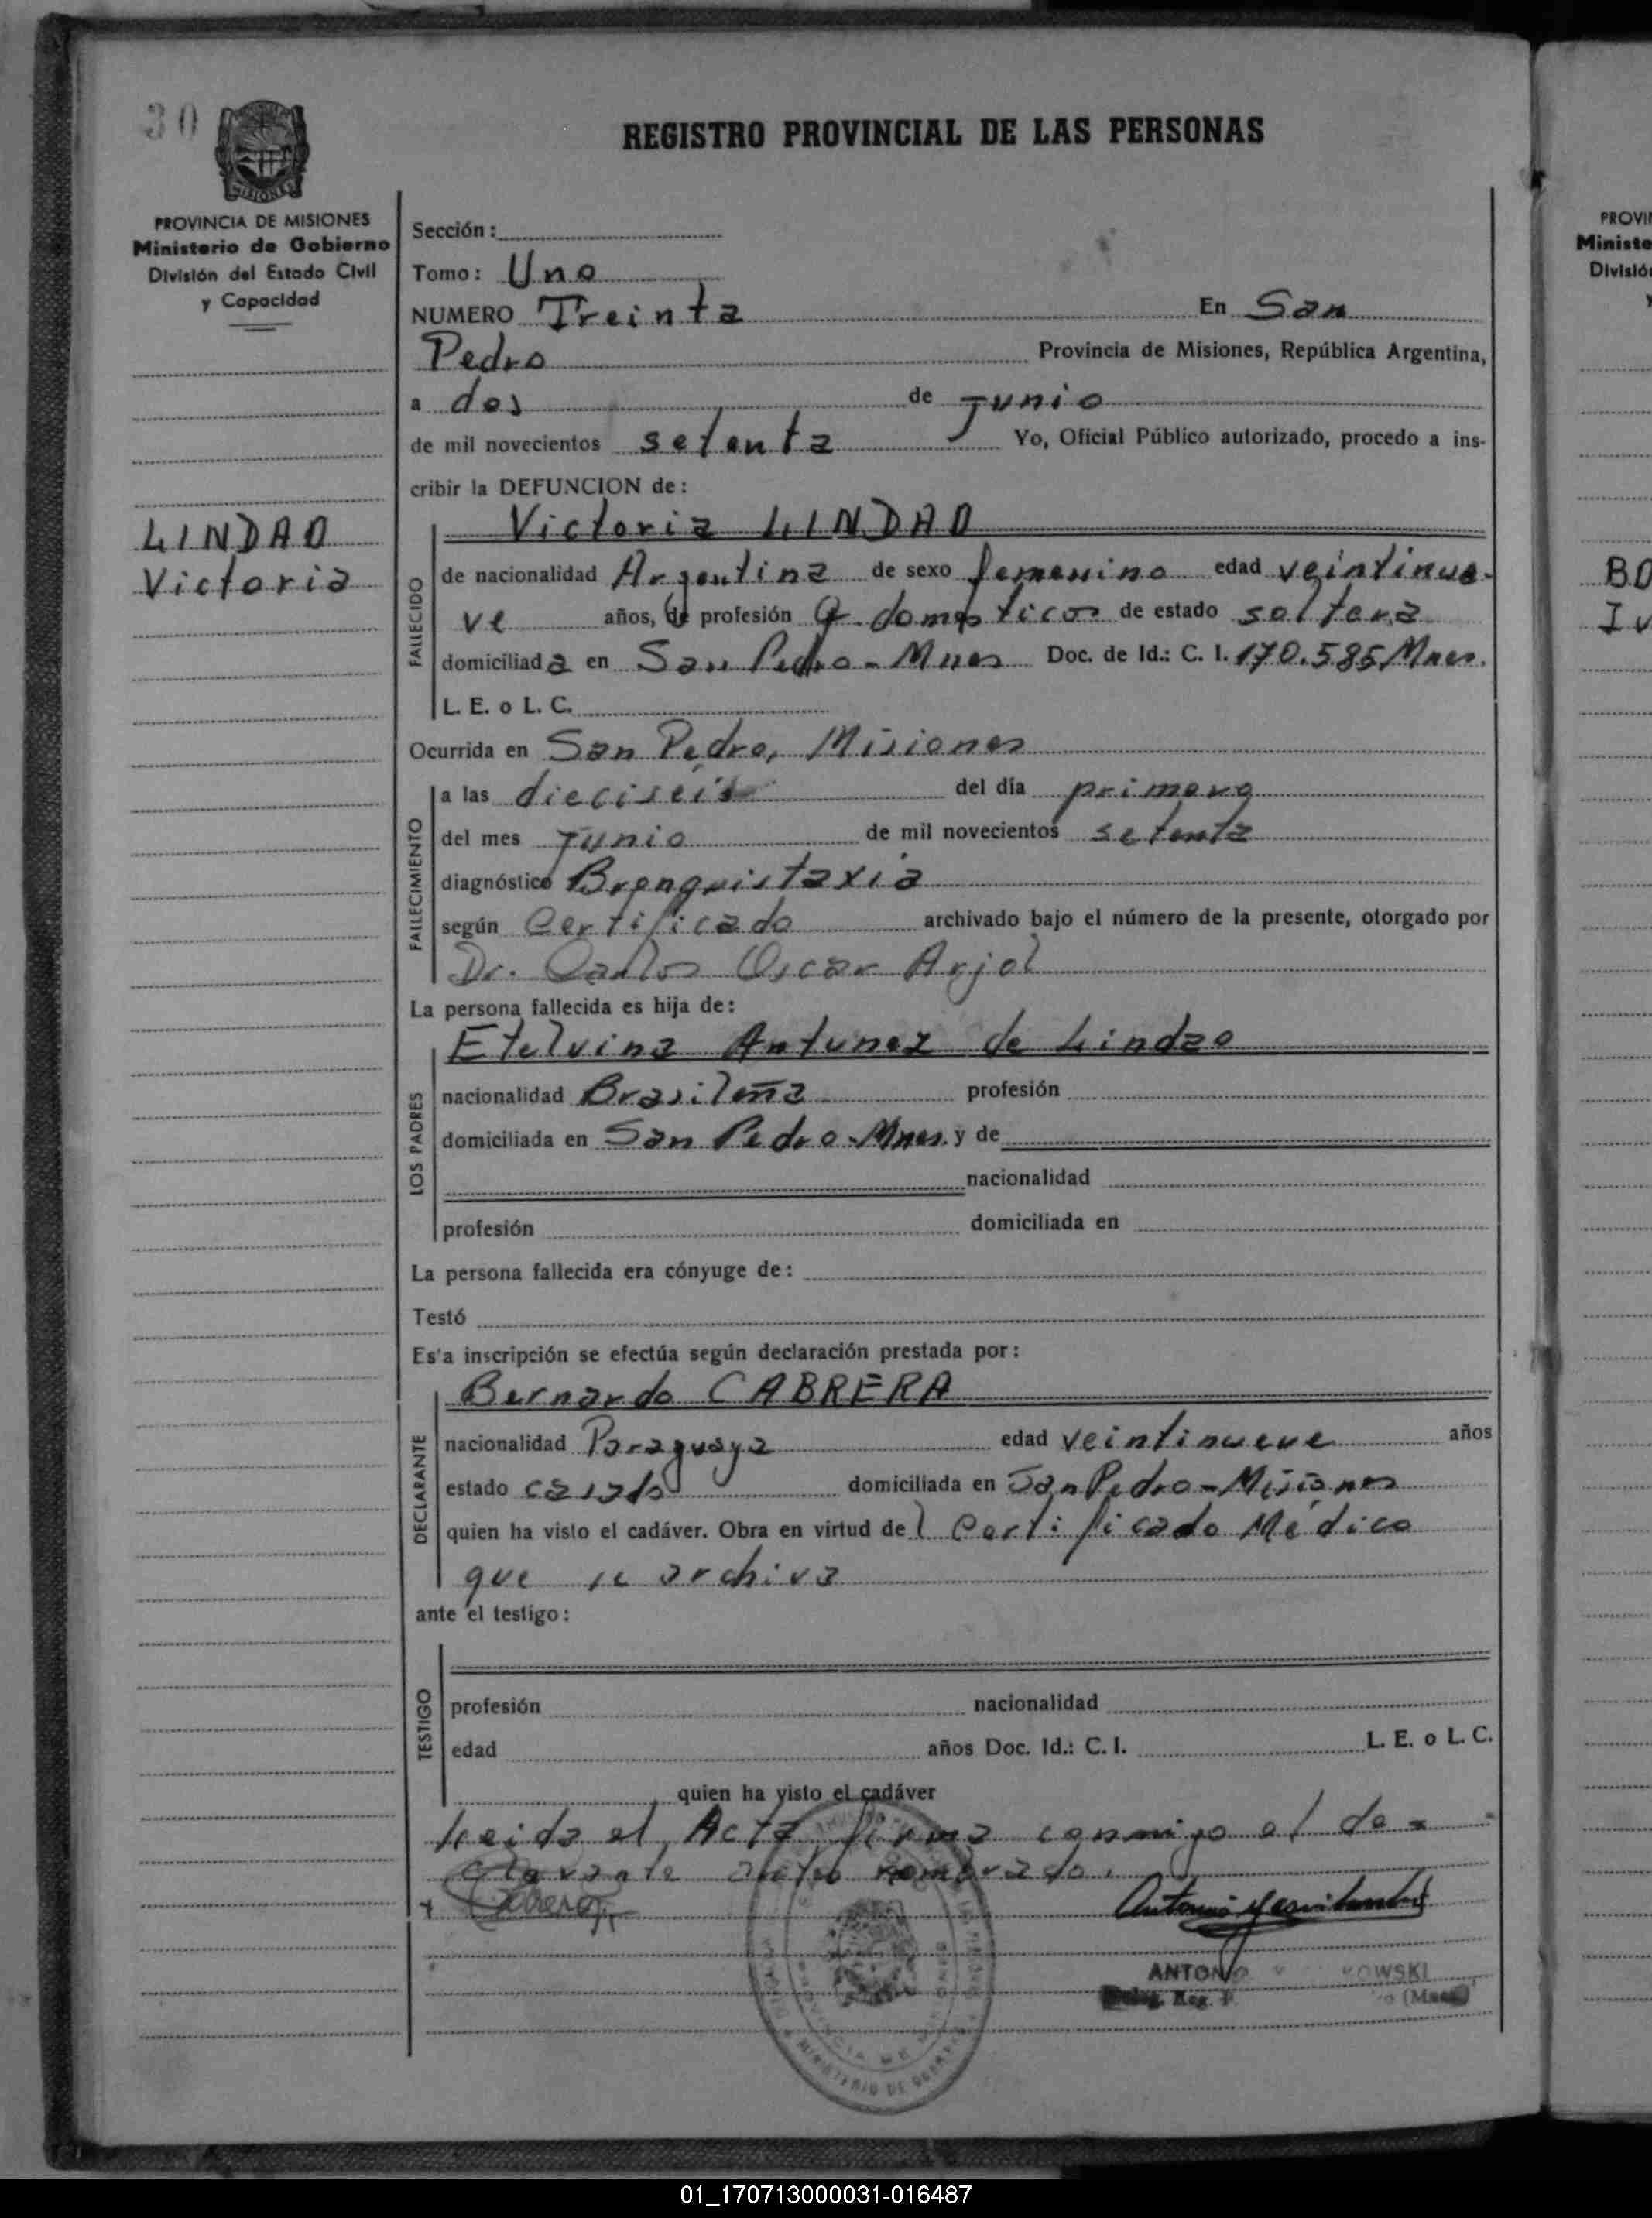 30
REGISTRO PROVINCIAL DE LAS PERSONAS
PROVINCIA DE MISIONES
Ministerio de Gobierno
División del Estado Civil
y Capacidad
LINDAO
Victoria
Sección:
Tomo: Uno
NUMERO Treinta En San
Pedro Provincia de Misiones, República Argentina,
a dos de Junio
de mil novecientos setenta Yo, Oficial Público autorizado, procedo a ins-
cribir la DEFUNCION de:
Victoria LINDAO
FALLECIDO
de nacionalidad Argentina de sexo femenino edad veintinue-
ve años, de profesión Q. domésticos de estado soltera
domiciliada en San Pedro - Mnes Doc. de Id.: C. I. 170.585 Mnes.
L. E. o L. C.
Ocurrida en San Pedro, Misiones
FALLECIMIENTO
a las dieciséis del día primero
del mes Junio de mil novecientos setenta
diagnóstico Bronquistaxia
según Certificado archivado bajo el número de la presente, otorgado por
Dr. Carlos Oscar Arjol
La persona fallecida es hija de:
LOS PADRES
Etelvina Antunez de Lindao
nacionalidad Brasileña profesión
domiciliada en San Pedro - Mnes. y de
nacionalidad
profesión domiciliada en
La persona fallecida era cónyuge de:
Testó
Es'a inscripción se efectúa según declaración prestada por:
DECLARANTE
Bernardo CABRERA
nacionalidad Paraguaya edad veintinueve años
estado casado domiciliada en San Pedro - Misiones
quien ha visto el cadáver. Obra en virtud del Certificado Médico
que se archiva
ante el testigo:
TESTIGO
profesión nacionalidad
edad años Doc. Id.: C. I. L. E. o L. C.
quien ha visto el cadáver
Leida el Acta firma conmigo el de-
clarante antes nombrado.
Cabrera
ANTONIO KOWSKI
Reg. (Mnes)
PROVIN
Ministe
División
BO
01_170713000031-016487